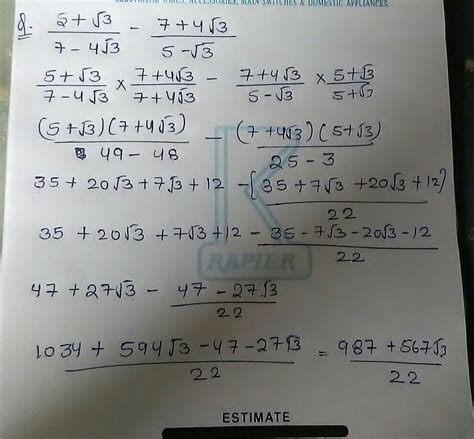 ELECTRICAL WIRES, ACCESSORIES, MAIN SWITCHES & DOMESTIC APPLIANCES.
Q. (5+√3)/(7-4√3) - (7+4√3)/(5-√3)
(5+√3)/(7-4√3) × (7+4√3)/(7+4√3) - (7+4√3)/(5-√3) × (5+√3)/(5+√3)
(5+√3)(7+4√3)/(49-48) - (7+4√3)(5+√3)/(25-3)
35+20√3+7√3+12 -(35+7√3+20√3+12)/22
35+20√3+7√3+12 -35-7√3-20√3-12/22
RAPIER
47+27√3 - 47-27√3/22
1034+594√3-47-27√3/22 = 987+567√3/22
ESTIMATE